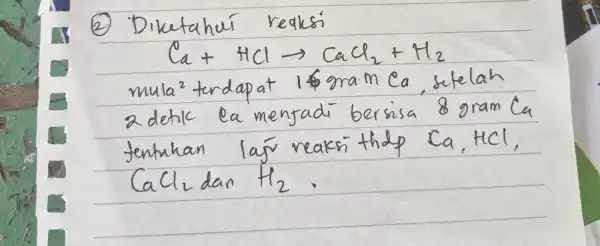 ② Diketahui reaksi
Ca + HCl → CaCl₂ + H₂
mula² terdapat 16 gram Ca, setelah
2 detik Ca menjadi bersisa 8 gram Ca
tentuhan laju reaksi thdp Ca, HCl,
CaCl₂ dan H₂.